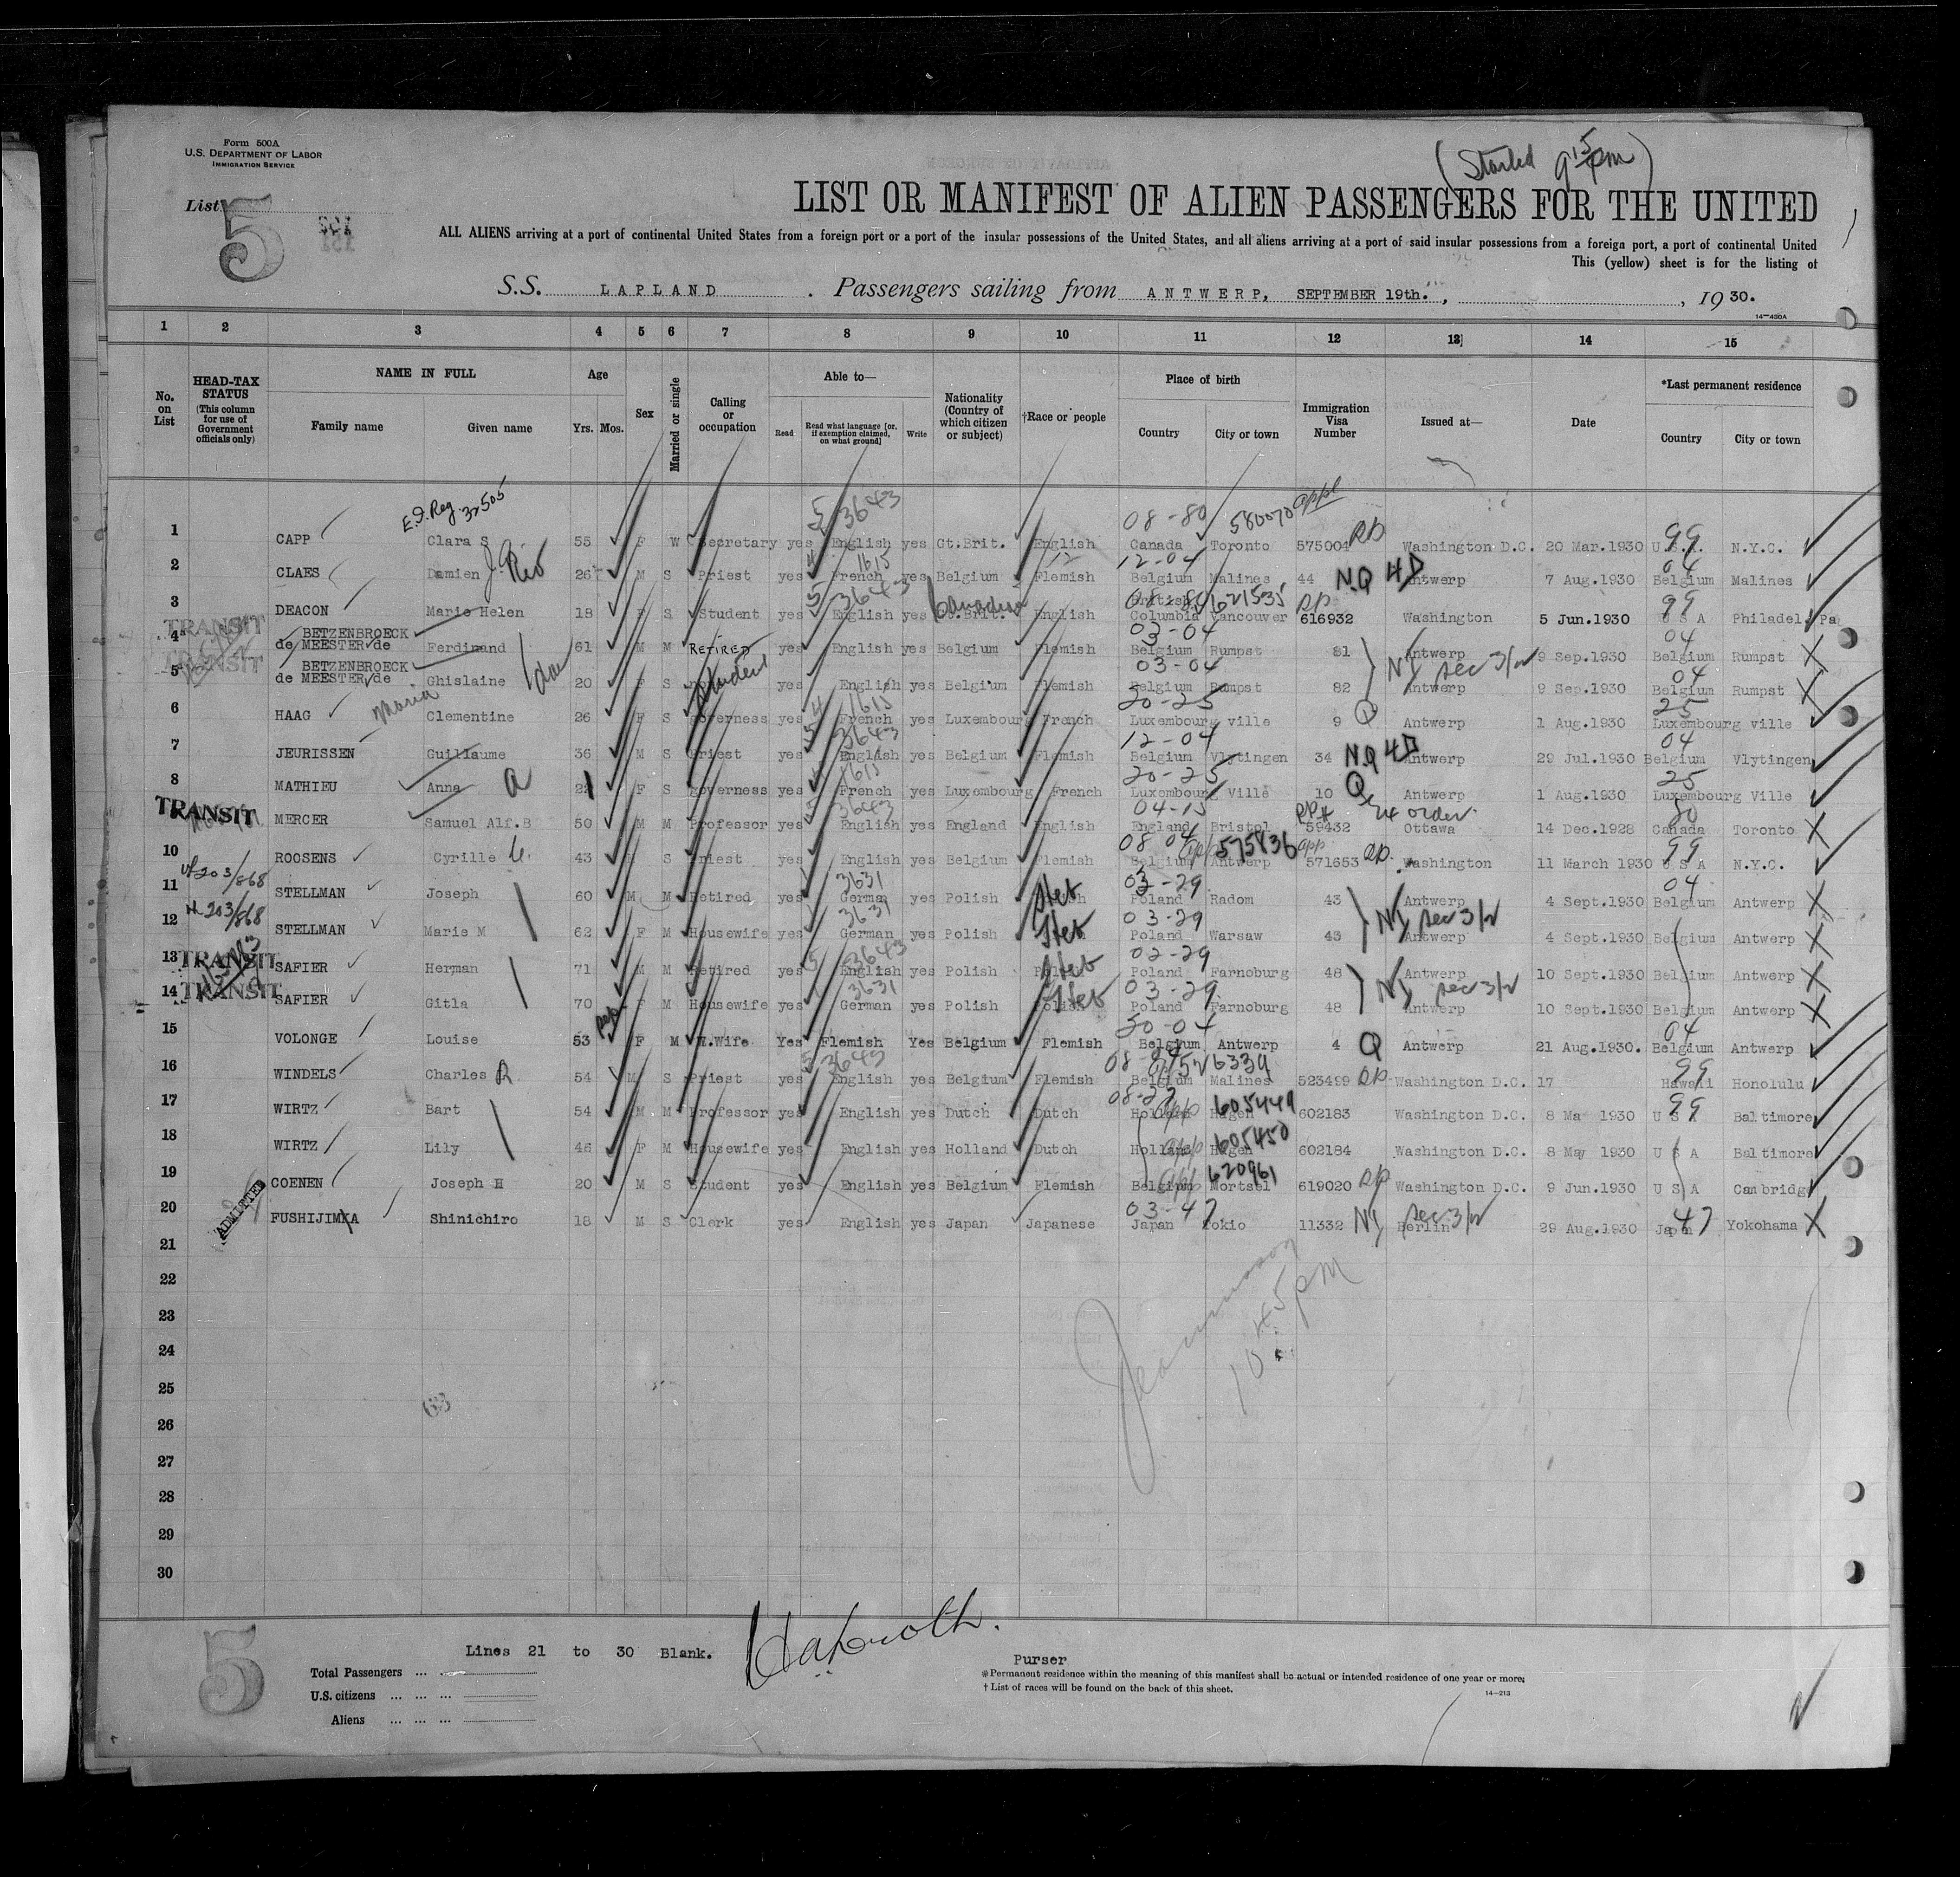 (Started 9 15 pm)
Form 500A
U.S. DEPARTMENT OF LABOR
IMMIGRATION SERVICE
List 5
LIST OR MANIFEST OF ALIEN PASSENGERS FOR THE UNITED
ALL ALIENS arriving at a port of continental United States from a foreign port or a port of the insular possessions of the United States, and all aliens arriving at a port of said insular possessions from a foreign port, a port of continental United
This (yellow) sheet is for the listing of
S.S. LAPLAND. Passengers sailing from ANTWERP, SEPTEMBER 19th., , 19 30.
14—430A
1 2 3 4 5 6 7 8 9 10 11 12 13 14 15
No. on List HEAD-TAX STATUS (This column for use of Government officials only) NAME IN FULL Family name Given name Age Yrs. Mos. Sex Married or single Calling or occupation Able to— Read Read what language [or, if exemption claimed, on what ground] Write Nationality (Country of which citizen or subject) †Race or people Place of birth Country City or town Immigration Visa Number Issued at— Date *Last permanent residence Country City or town
E.I. Reg. 32505 5 3643 08-80 580070 appl 99
1 CAPP Clara S 55 F W Secretary yes English yes Gt.Brit. English Canada Toronto 575004 RP Washington D.C. 20 Mar.1930 U.S.A. N.Y.C.
4 1615 12-04 04
2 CLAES Damien J. 26 M S Priest yes French yes Belgium Flemish Belgium Malines 44 NQ 4D Antwerp 7 Aug.1930 Belgium Malines
5 3643 08-80 621535 RP 99
3 DEACON Marie Helen 18 F S Student yes English yes Gt.Brit. Canadian English British Columbia Vancouver 616932 Washington 5 Jun.1930 U S A Philadel. Pa
TRANSIT 03-04 04
4 BETZENBROECK de MEESTER de Ferdinand 61 M M RETIRED yes English yes Belgium Flemish Belgium Rumpst 81 Antwerp 9 Sep.1930 Belgium Rumpst X
TRANSIT 03-04 NI sec 3/2 04
5 BETZENBROECK de MEESTER de Ghislaine 20 F S Student yes English yes Belgium Flemish Belgium Rumpst 82 Antwerp 9 Sep.1930 Belgium Rumpst X
Maria 4 1615 20-25 25
6 HAAG Clementine 26 F S Governess yes French yes Luxembourg French Luxembourg ville 9 Q Antwerp 1 Aug.1930 Luxembourg ville
5 3643 12-04 04
7 JEURISSEN Guillaume 36 M S Priest yes English yes Belgium Flemish Belgium Vlytingen 34 NQ 4D Antwerp 29 Jul.1930 Belgium Vlytingen
1615 20-25 25
8 MATHIEU Anna a 22 F S Governess yes French yes Luxembourg French Luxembourg Ville 10 Q Antwerp 1 Aug.1930 Luxembourg Ville
TRANSIT 3643 04-15 80
MERCER Samuel Alf.B 50 M M Professor yes English yes England English England Bristol 59432 Ottawa 14 Dec.1928 Canada Toronto X
08 04 575836 app 99
10 ROOSENS Cyrille 43 S Priest yes English yes Belgium Flemish Belgium Antwerp 571653 RP Washington 11 March 1930 U S A N.Y.C.
203/868 3631 03-29 04
11 STELLMAN Joseph 60 M M Retired yes German yes Polish Heb Poland Radom 43 Antwerp 4 Sept.1930 Belgium Antwerp X
203/868 3631 03-29 NI sec 3/2
12 STELLMAN Marie M 62 F M Housewife yes German yes Polish Heb Poland Warsaw 43 Antwerp 4 Sept.1930 Belgium Antwerp X
TRANSIT 5 3643 02-29
13 SAFIER Herman 71 M M Retired yes English yes Polish Heb Poland Farnoburg 48 Antwerp 10 Sept.1930 Belgium Antwerp X
TRANSIT 3631 03-29 NI sec 3/2
14 SAFIER Gitla 70 F M Housewife yes German yes Polish Heb Poland Farnoburg 48 Antwerp 10 Sept.1930 Belgium Antwerp X
20-04 04
15 VOLONGE Louise 53 F M H.Wife Yes Flemish Yes Belgium Flemish Belgium Antwerp 4 Q Antwerp 21 Aug.1930. Belgium Antwerp
5 3643 08-04 526339 99
16 WINDELS Charles R 54 M S Priest yes English yes Belgium Flemish Belgium Malines 523499 RP Washington D.C. 17 Hawaii Honolulu
08-27 app 605449 99
17 WIRTZ Bart 54 M M Professor yes English yes Dutch Dutch Holland Hagen 602183 Washington D.C. 8 Ma 1930 U S A Baltimore
app 605450
18 WIRTZ Lily 46 F M Housewife yes English yes Holland Dutch Holland Hagen 602184 Washington D.C. 8 May 1930 U S A Baltimore
app 620961
19 COENEN Joseph H 20 M S Student yes English yes Belgium Flemish Belgium Mortsel 619020 RP Washington D.C. 9 Jun.1930 U S A Cambridg
ADMITTED 03-47 47
20 FUSHIJIMXA Shinichiro 18 M S Clerk yes English yes Japan Japanese Japan Tokio 11332 NI sec 3/2 Berlin 29 Aug.1930 Japan Yokohama X
21
22
23
24 10 45 PM
25
26 63
27
28
29
30
5
Lines 21 to 30 Blank.
Purser
Total Passengers
U.S. citizens
Aliens
*Permanent residence within the meaning of this manifest shall be actual or intended residence of one year or more.
† List of races will be found on the back of this sheet.
14—213